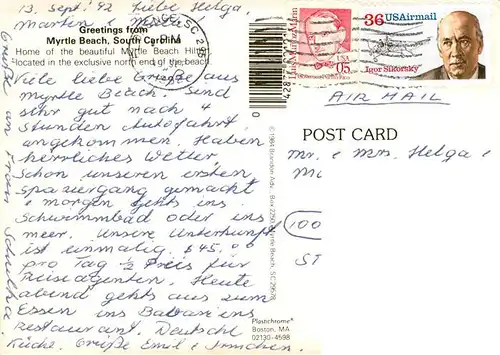 13. Sept. 92 Liebe Helga,
Marten
Greetings from
Myrtle Beach, South Carolina
Home of the beautiful Myrtle Beach Hilton
located in the exclusive north end of the beach.
Viele liebe Grüße aus
Myrtle Beach. Sind
sehr gut nach 4
Stunden Autofahrt
angekommen. Haben
herrliches Wetter.
Schon unseren ersten
Spaziergang gemacht
+ morgen gehts ins
Schwimmbad oder ins
Meer. Unsere Unterkunft
ist einmalig. $45.00
pro Tag ½ Preis für
Reiseagenten. Heute
abend gehts aus zum
Essen ins
Restaurant. Deutsche
Küche. Grüße Emil + Irmchen.
Grüße an Frau
© 1984 Brandon Adv., Box 2250, Myrtle Beach, SC 29578
Plastichrome®
Boston, MA
02130-4598
USA
05
36 USAirmail
Igor Sikorsky
AIR MAIL
POST CARD
Mr. + Mrs. Helga +
100
ST